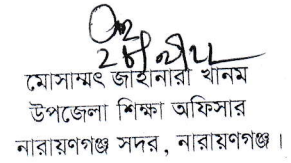 মোসাম্মৎ জাহানারা খানম
উপজেলা শিক্ষা অফিসার
নারায়ণগঞ্জ সদর, নারায়ণগঞ্জ।